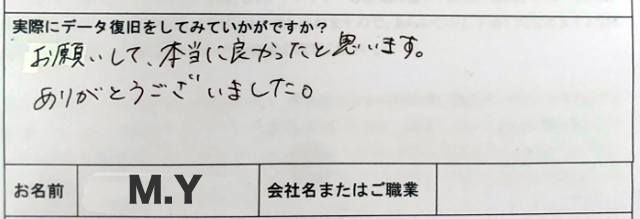 実際にデータ復旧をしてみていかがですか？
お願いして、本当に良かったと思います。
ありがとうございました。
お名前 M.Y 会社名またはご職業